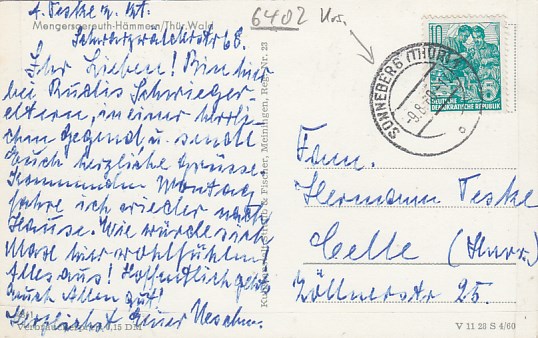 A. Teske z. Zt.
Mengersgereuth-Hämmern/Thür. Wald
Schwarzwalderstr 68.
Ihr Lieben! Bin hier
bei Rudis Schwieger
eltern, in einer herrli-
chen Gegend u. sende
Euch herzliche Grüsse.
Kommenden Montag
fahre ich wieder nach
Hause. Wie würde sich
Max hier wohlfühlen!
Alles aus! Hoffentlich geht's
Euch Allen gut!
Herzlichst Euer
Verbraucherpreis 0,15 DM
& Fischer, Meiningen, Reg.-Nr. 23
6402
10 5
DEUTSCHE
DEMOKRATISCHE REPUBLIK
SONNEBERG (THÜR)
-9.8.
Fam.
Hermann Teske
Celle (Hann.)
Zöllnerstr 25.
V 11 28 S 4/60